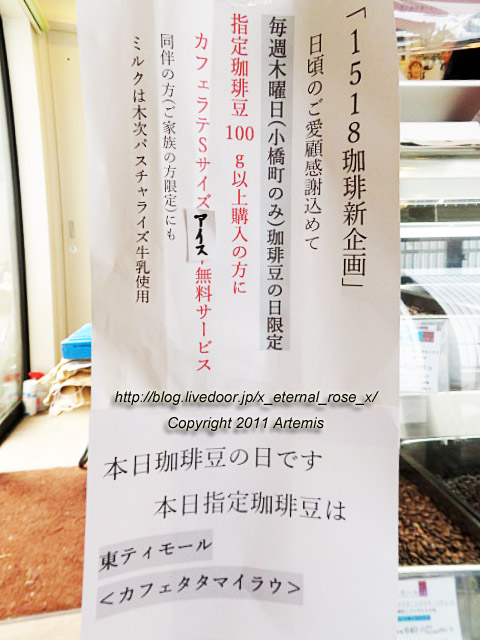 「1518珈琲新企画」
日頃のご愛顧感謝込めて
毎週木曜日(小橋町のみ)珈琲豆の日限定
指定珈琲豆100g以上購入の方に
カフェラテSサイズアイス・無料サービス
同伴の方(ご家族の方限定)にも
ミルクは木次パスチャライズ牛乳使用
http://blog.livedoor.jp/x_eternal_rose_x/
Copyright 2011 Artemis
本日珈琲豆の日です
本日指定珈琲豆は
東ティモール
<カフェタタマイラウ>